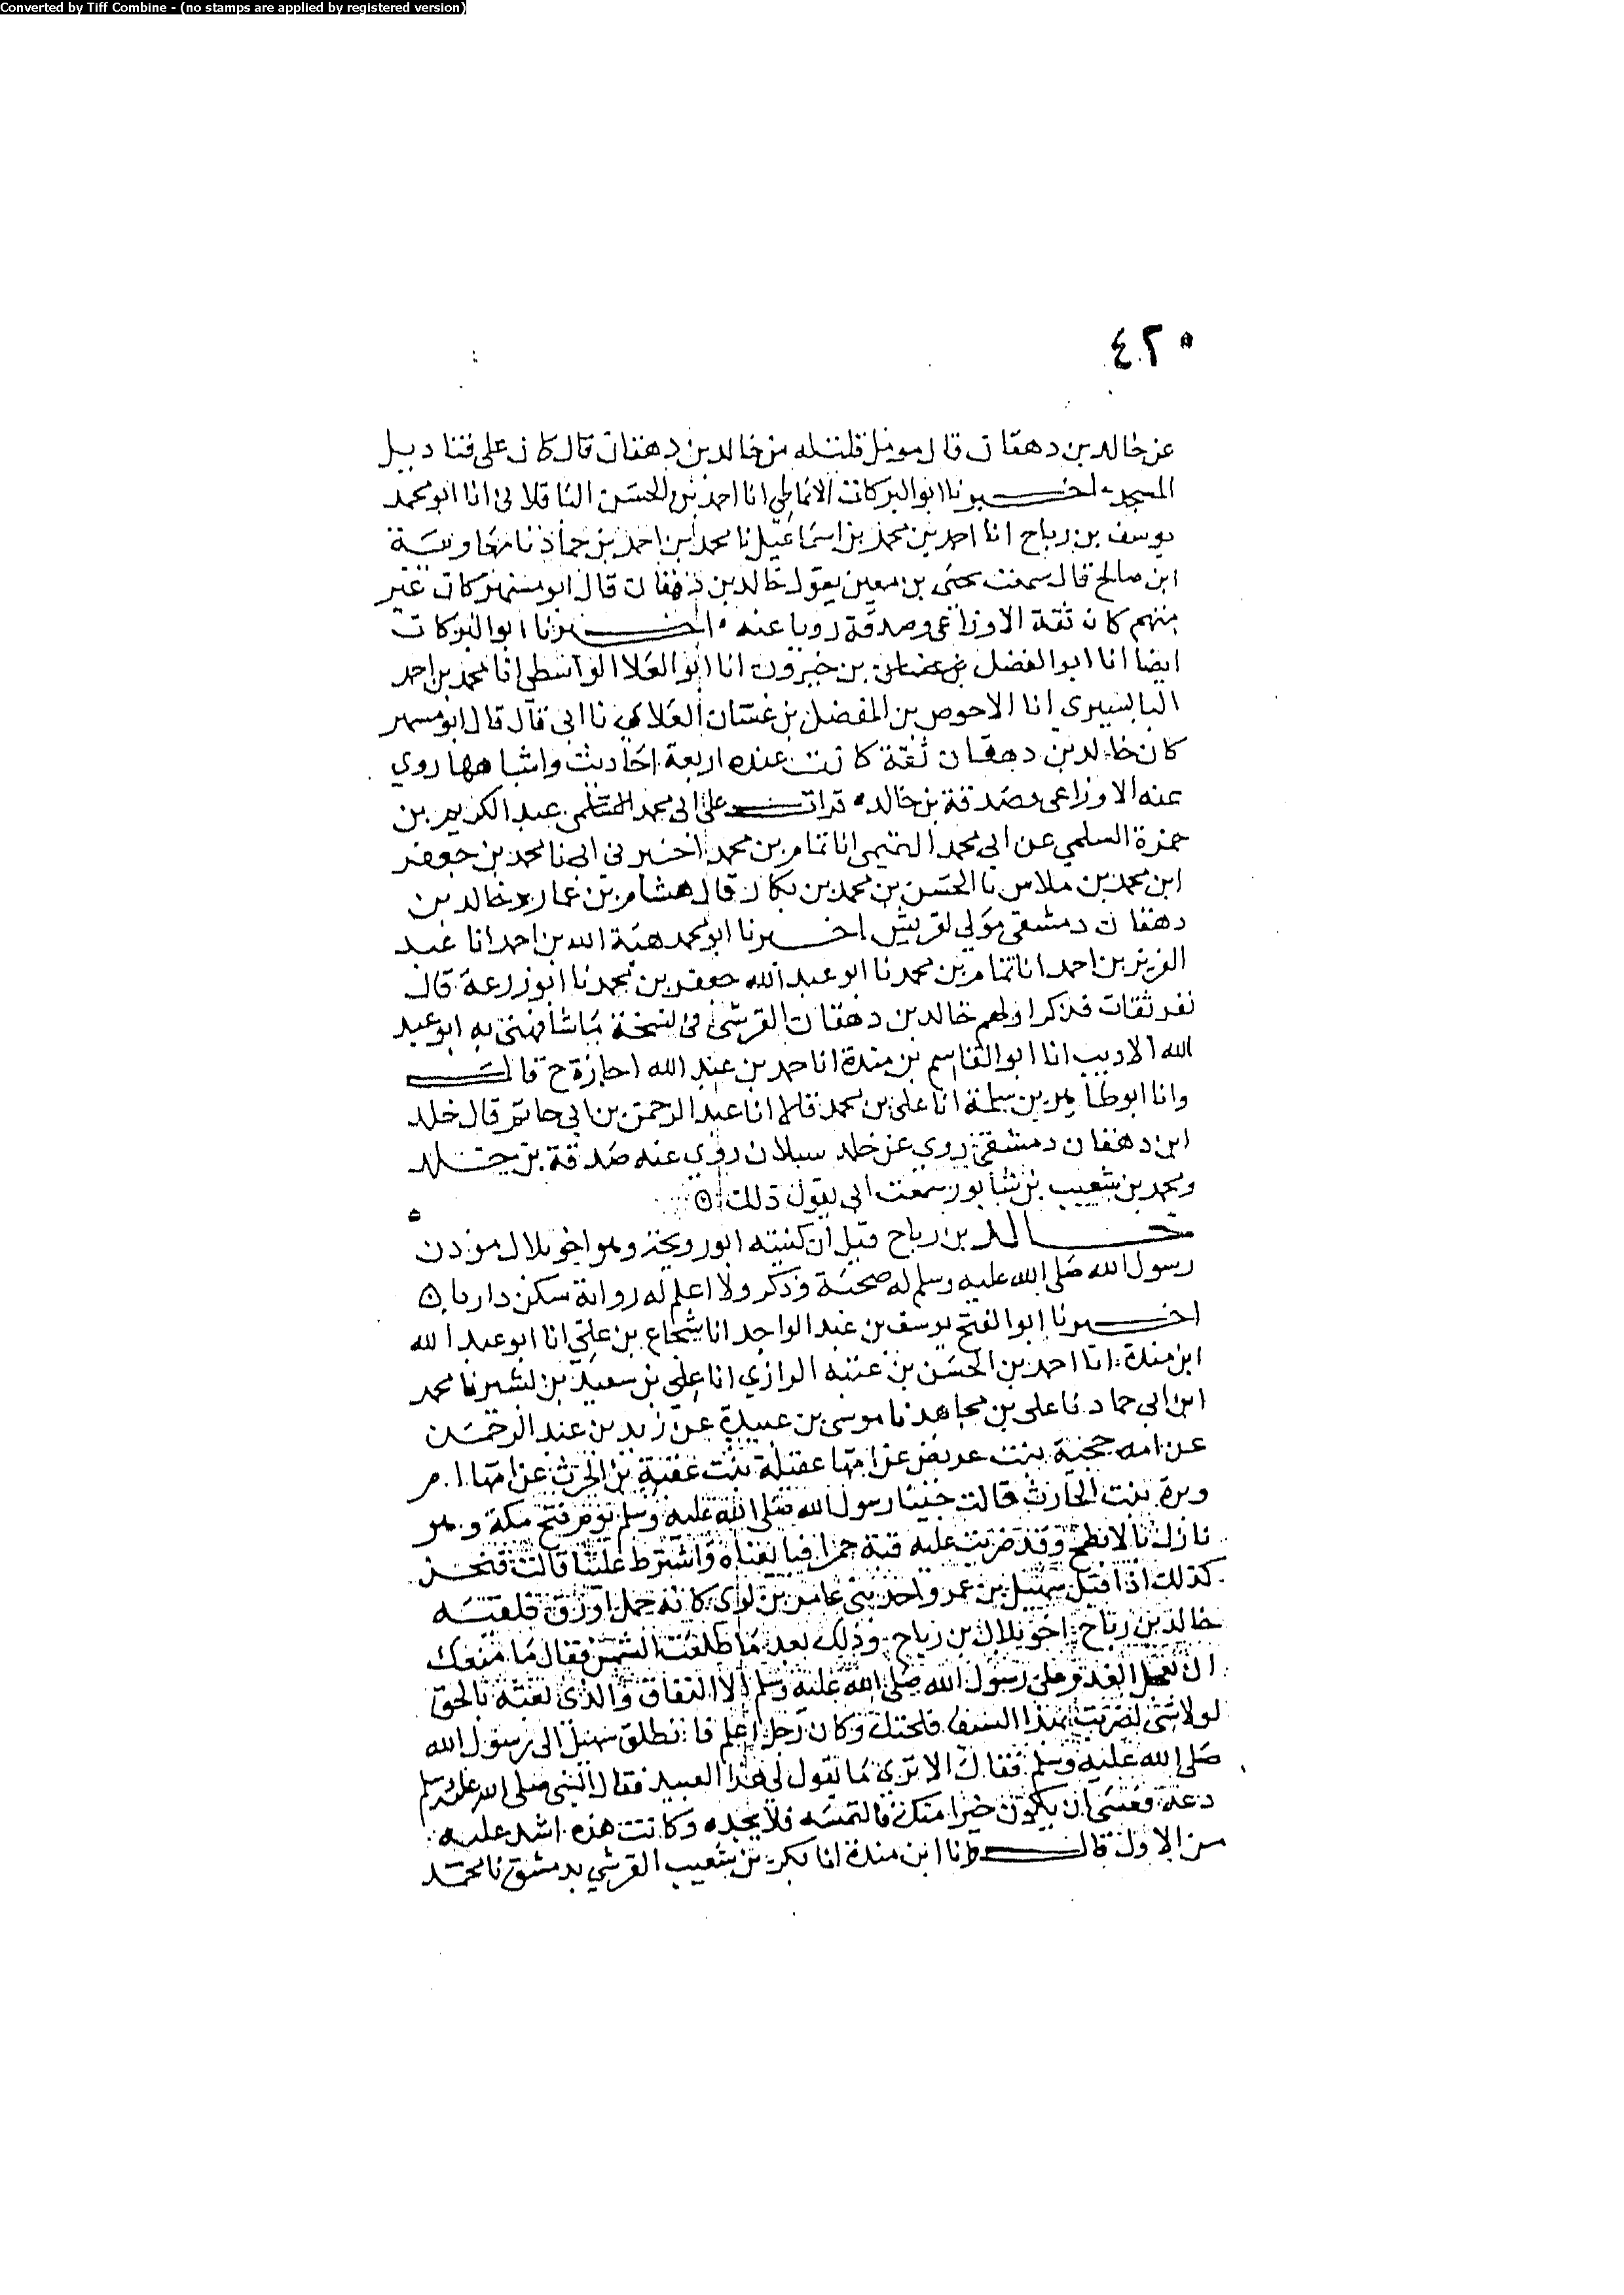 Converted by Tiff Combine - (no stamps are applied by registered version)
٤٢٠
عن خالد بن دهقان قال مومل قلت له من خالد بن دهقان قال كان على قناديل
المسجد اخبرنا ابو البركات الانماطي انا احمد بن الحسن الباقلاني انا ابو محمد
يوسف بن رباح انا احمد بن محمد بن اسماعيل نا محمد بن احمد بن حماد نا معاوية
ابن صالح قال سمعت يحيى بن معين يقول خالد بن دهقان قال ابو مسهر كان غير
متهم كان ثقة الاوزاعي وصدقة رويا عنه اخبرنا ابو البركات
ايضا انا ابو الفضل بن خيرون انا ابو العلا الواسطي انا محمد بن احمد
البابسيري انا الاحوص بن المفضل بن غسان الغلابي نا ابي قال قال ابو مسهر
كان خالد بن دهقان ثقة كانت عنده اربعة احاديث واشباهها روي
عنه الاوزاعي وصدقة بن خالد قرات على ابي محمد السلمي عبد الكريم بن
حمزة السلمي عن ابي محمد التميمي انا تمام بن محمد اخبرني ابي نا محمد بن جعفر
ابن محمد بن ملاس نا الحسن بن محمد بن بكار قال هشام بن عمار خالد بن
دهقان دمشقي مولي لقريش اخبرنا ابو محمد هبة الله بن احمد انا عبد
العزيز بن احمد انا تمام بن محمد نا ابو عبد الله جعفر بن محمد نا ابو زرعة قال
نفر ثقات فذكر اولهم خالد بن دهقان القرشي في نسخة ما شافهني به ابو عبد
الله الاديب انا ابو القاسم بن مندة انا حمد بن عبد الله اجازة ح قال
وانا ابو طاهر بن سلمة انا علي بن محمد قالا انا عبد الرحمن بن ابي حاتم قال خلد
ابن دهقان دمشقي روي عن خلد سبلان روي عنه صدقة بن خلد
ومحمد بن شعيب بن شابور سمعت ابي يقول ذلك
خالد بن رباح قيل ان كنيته ابو رويحة وهو اخو بلال موذن
رسول الله صلى الله عليه وسلم له صحبة وذكر ولا اعلم له رواية سكن داريا
اخبرنا ابو الفتح يوسف بن عبد الواحد انا شجاع بن علي انا ابو عبد الله
ابن مندة انا احمد بن الحسن بن عتبه الرازي انا علي بن سعيد بن بشير نا محمد
ابن ابي حماد نا علي بن مجاهد نا موسى بن عبيدة عن زيد بن عبد الرحمن
عن امه حجية بنت قريض عن امها عقيلة بنت عقبة بن الحرث عن امها ام
وبرة بنت الحارث قالت جينا رسول الله صلى الله عليه وسلم يوم فتح مكة وهو
نازل بالابطح وقد ضربت عليه قبة حمرا فبايعناه واشترط علينا قالت فنحن
كذلك اذا قبل سهيل بن عمرو احد بني عامر بن لوي كانه جمل اورق فلقيه
خالد بن رباح اخو بلال بن رباح وذلك بعد ما طلعت الشمس فقال ما منعك
ان تعجل الغدو على رسول الله صلى الله عليه وسلم الا النفاق والذي بعثه بالحق
لولا شي لضربت بهذا السيف فلحتك وكان رجلا اعلم فانطلق سهيل الى رسول الله
صلى الله عليه وسلم فقال الا ترى ما يقول لي هذا العبيد فقال النبي صلى الله عليه وسلم
دعه فعسى ان يكون خيرا منك فالتمسه فلا يجده وكانت هذه اشد عليه
من الاول قال وانا ابن مندة انا بكر بن شعيب القرشي بدمشق نا محمد